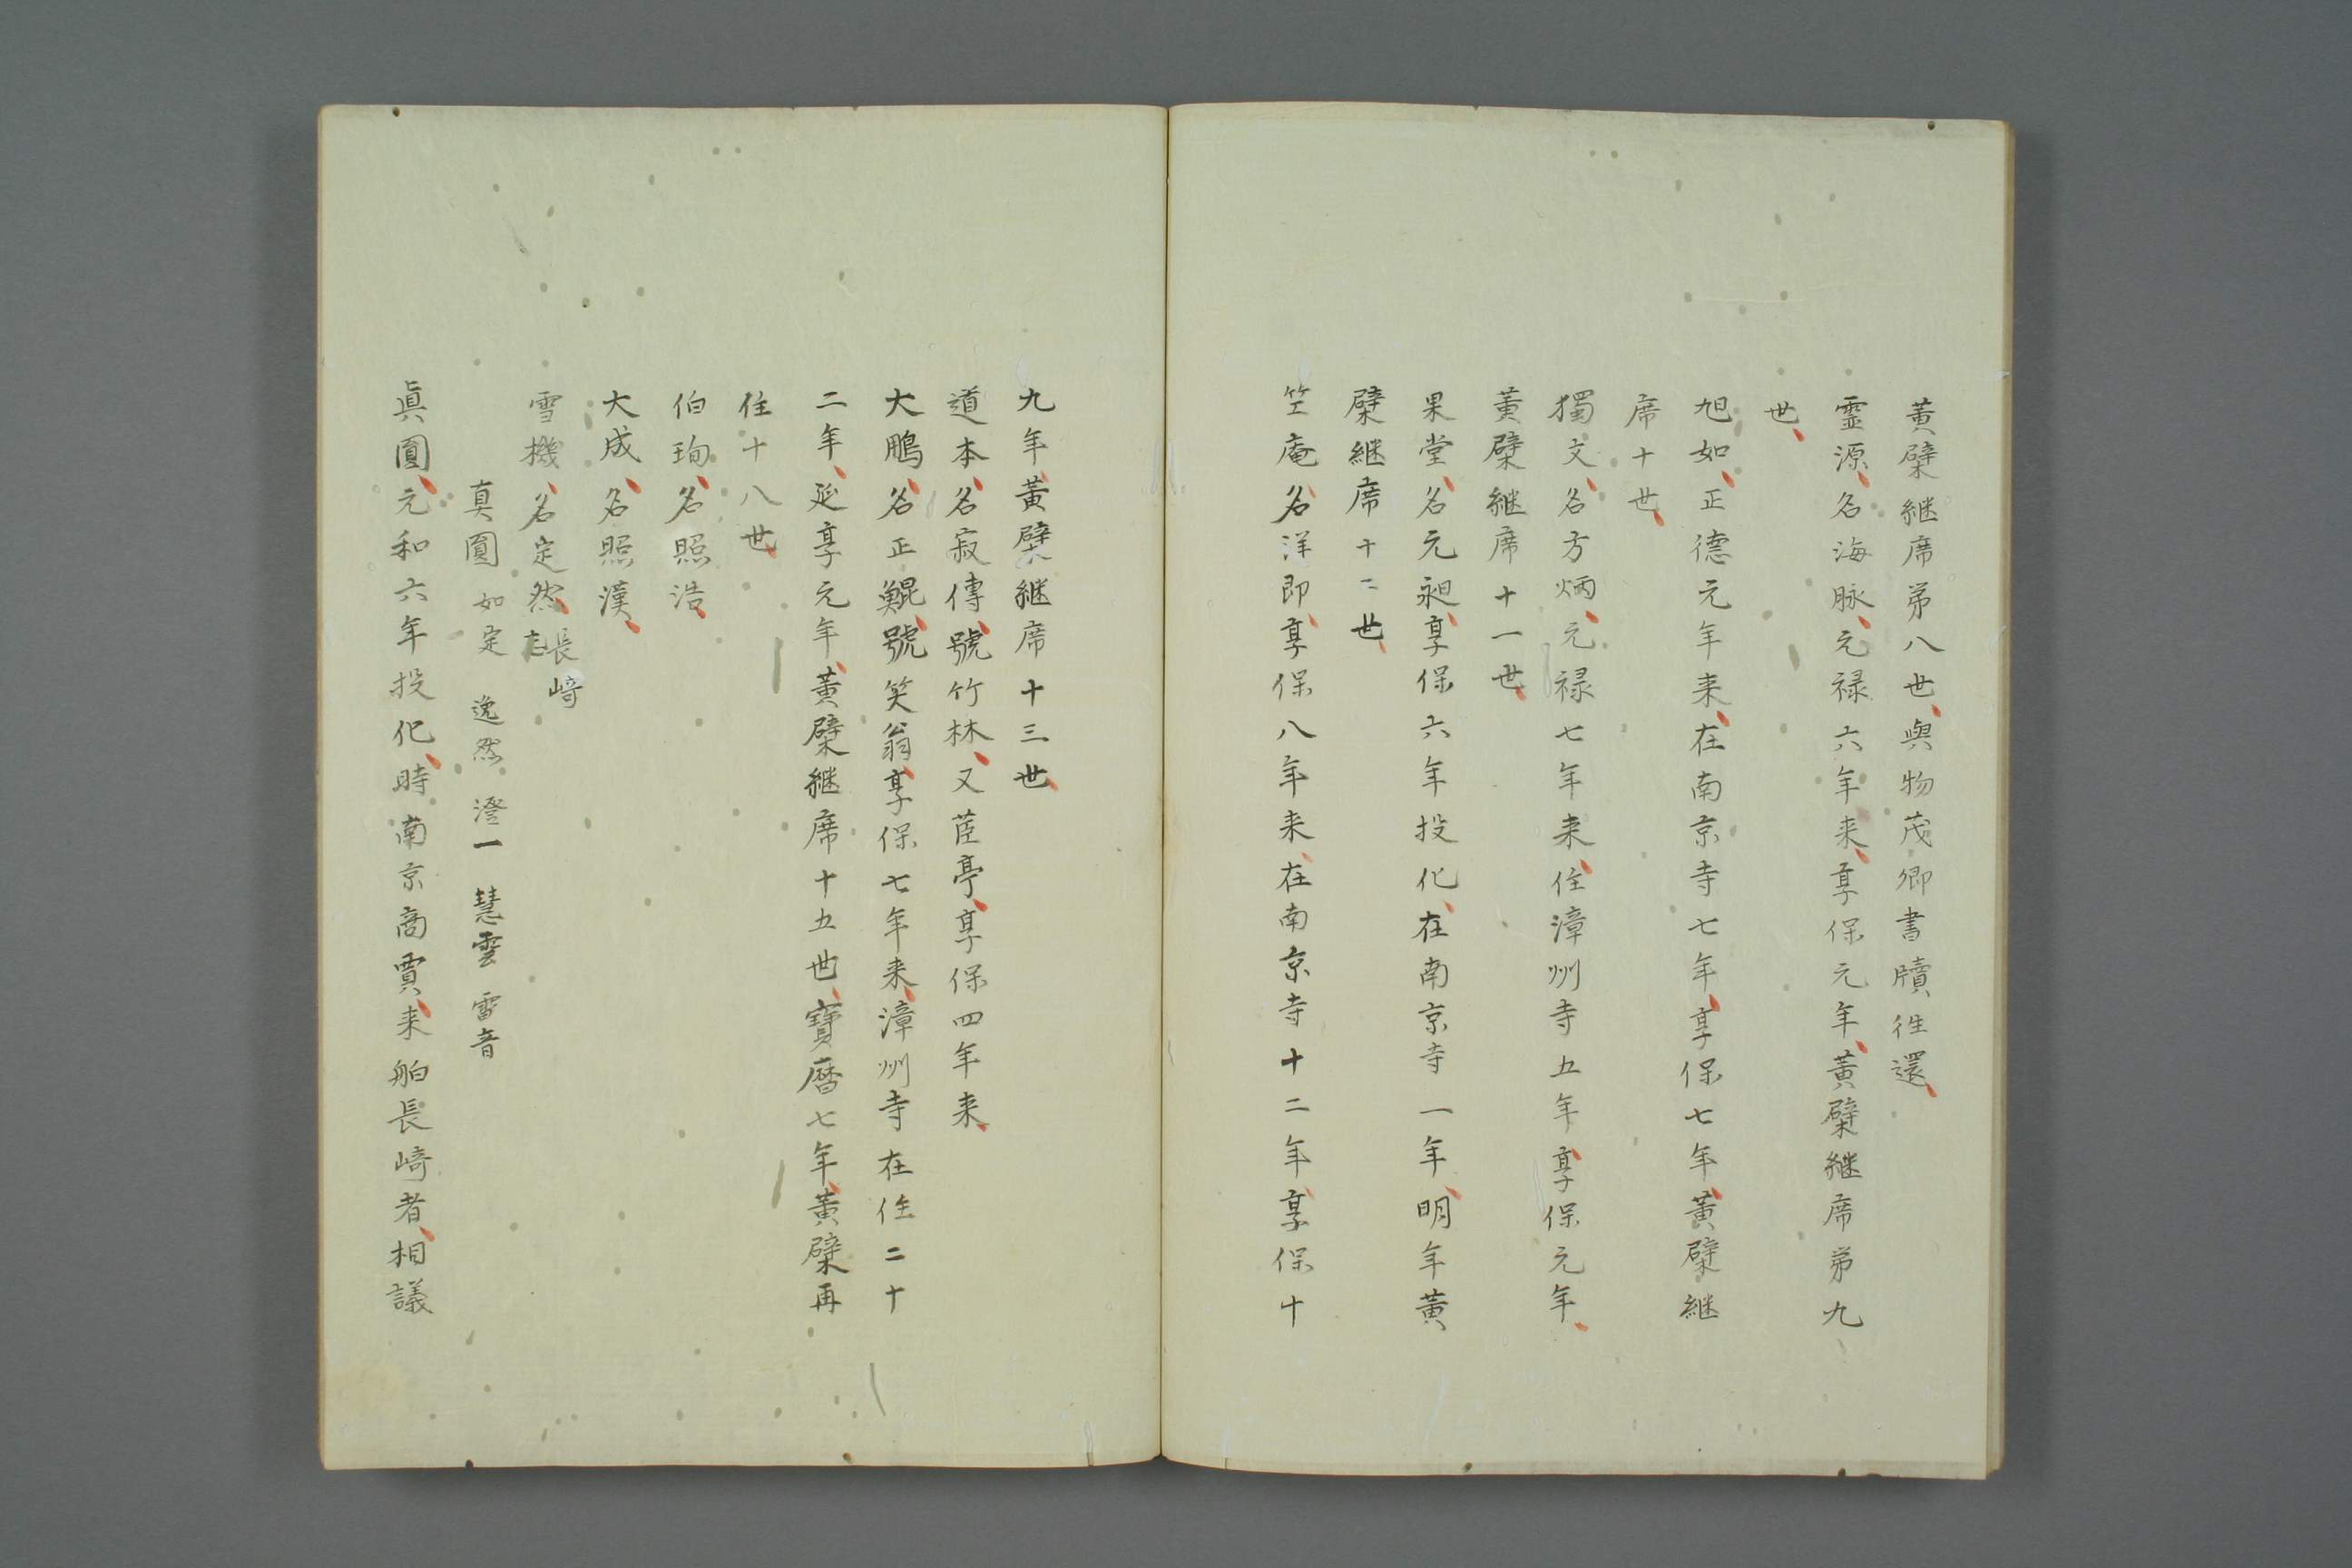 黄檗継席第八世、與物茂卿書牘往還、
霊源、名海脉、元禄六年来、享保元年、黄檗継席第九
世、
旭如、正德元年来、在南京寺七年、享保七年、黄檗継
席十世、
獨文、名方炳、元禄七年来、住漳州寺五年、享保元年、
黄檗継席十一世、
果堂、名元昶、享保六年投化、在南京寺一年、明年黄
檗継席十二世、
竺庵、名洋即、享保八年来、在南京寺十二年、享保十
九年、黄檗継席十三世、
道本、名寂傳、號竹林、又茝亭、享保四年来、
大鵬、名正鯤、號笑翁、享保七年来、漳州寺在住二十
二年、延享元年、黄檗継席十五世、寶暦七年、黄檗再
住十八世、
伯珣、名照浩、
大成、名照漢、
雪機、名定然、長崎志
真圓 如定 逸然 澄一 慧雲 雷音
眞圓、元和六年投化、時南京商賈、来舶長崎者、相議